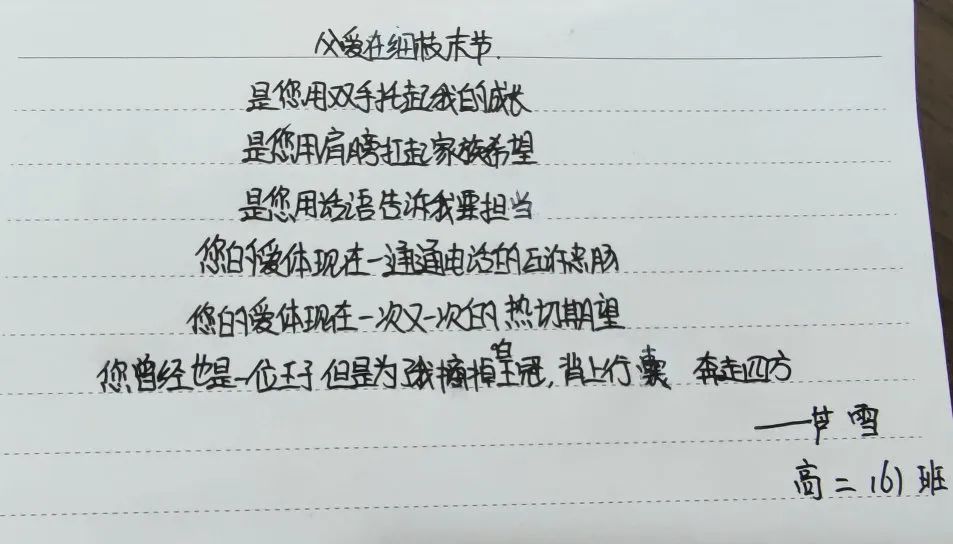 父爱在细枝末节.
是您用双手托起我的成长
是您用肩膀扛起家族希望
是您用话语告诉我要担当
您的爱体现在一通通电话的互诉忠肠
您的爱体现在一次又一次的热切期望
您曾经也是一位王子 但是为了我摘掉皇冠,背上行囊 奔走四方
——芦雪
高二(6)班